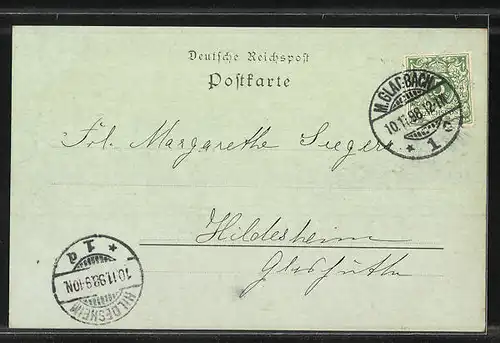 Deutsche Reichspost
Postkarte
M.GLADBACH
10.11.98.12-1N.
* 1 c
Frl. Margarethe Siegers
Hildesheim
Glashütte
* 1 a
10.11.98.9-10N.
HILDESHEIM